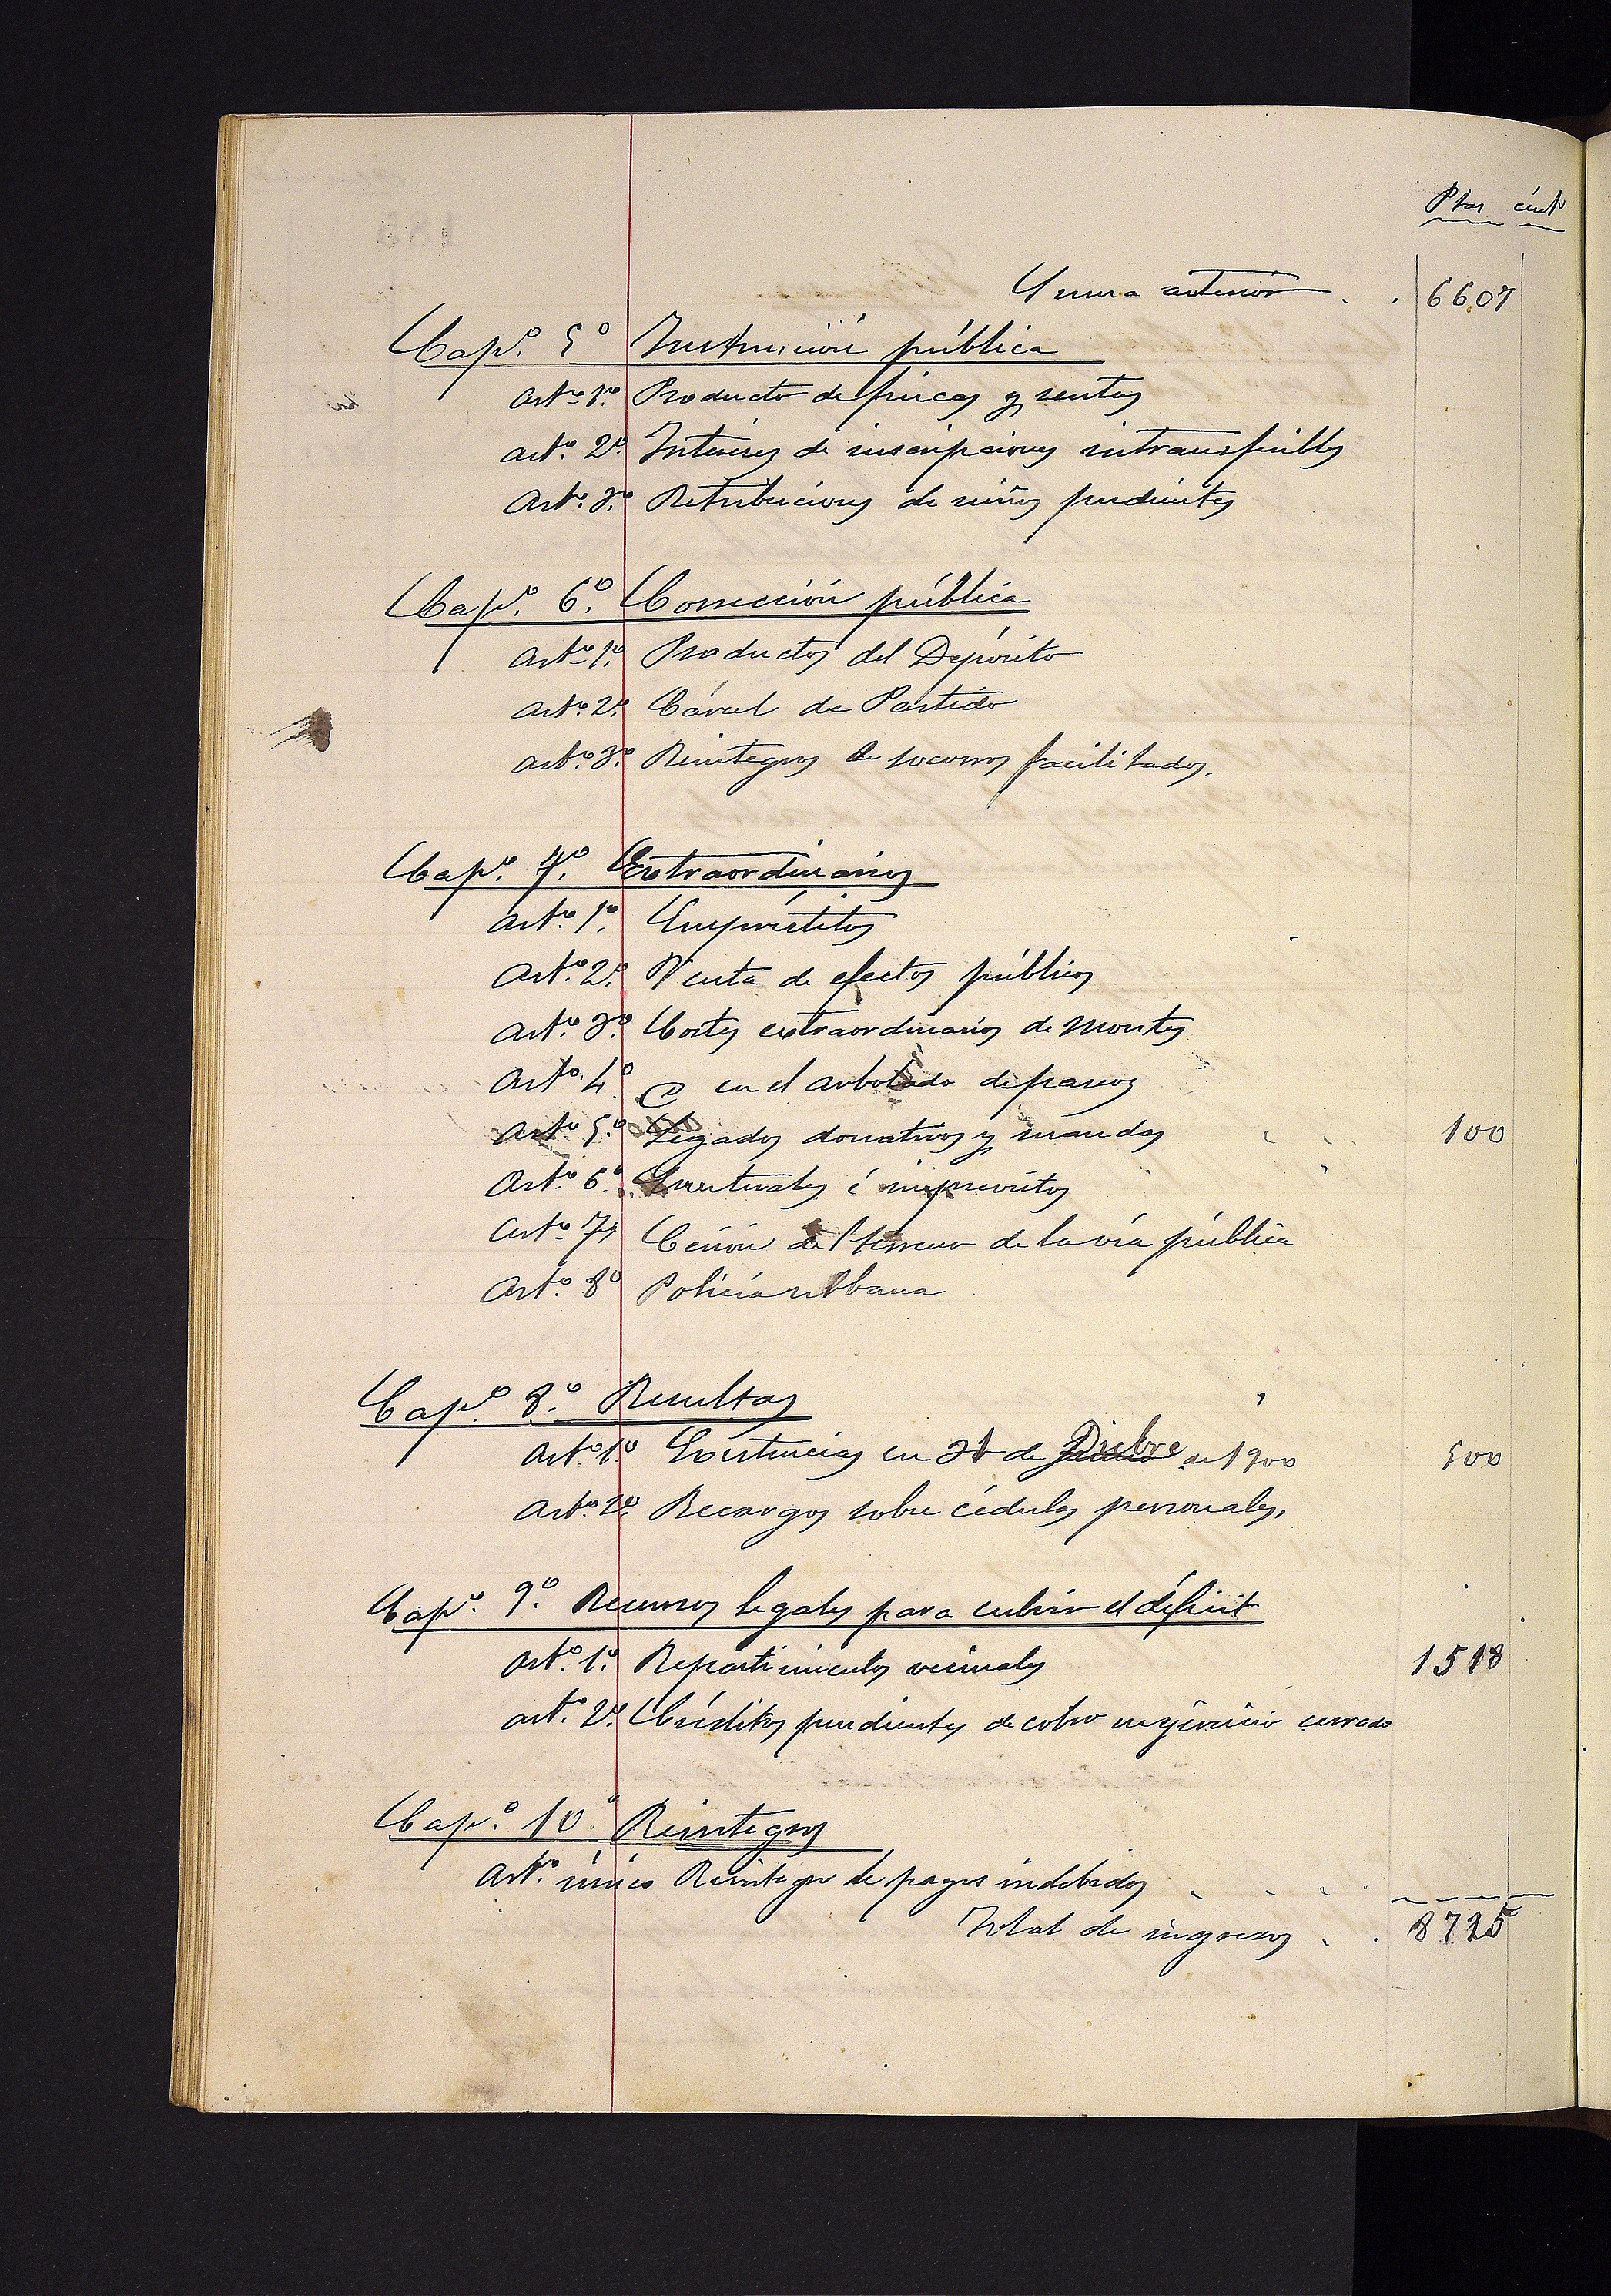 Ptas cénts
Suma anterior . . 6607
Capº. 5º Instrucción pública
Artº 1º. Producto de fincas y rentas
Artº. 2º. Intereses de inscripciones intransferibles
Artº. 3º. Retribuciones de niños pudientes
Capº. 6º. Corrección pública
Artº 1º. Productos del Depósito
Artº. 2º. Cárcel de Partido
Artº. 3º. Reintegros de socorros facilitados.
Capº. 7º. Extraordinarios
Artº. 1º. Empréstitos
Artº. 2º. Venta de efectos públicos
Artº. 3º. Cortes extraordinarios de montes
Artº. 4º en el arbolado de paseos
Artº 5º Legados donativos y mandas 100
Artº 6º. Eventuales é imprevistos
Artº 7º Cesión del terreno de la vía pública
Artº. 8º Policía urbana
Capº. 8º. Resultas
Artº. 1º. Existencias en 31 de Dicbre de 1900 500
Artº. 2º. Recargos sobre cédulas personales,
Capº. 9º. Recursos legales para cubrir el déficit
Artº. 1º. Repartimientos vecinales 1518
Artº. 2º. Créditos pendientes de cobro ejercicio cerrado
Capº. 10º. Reintegros
Artº. único Reintegro de pagos indebidos
Total de ingresos . . 8725